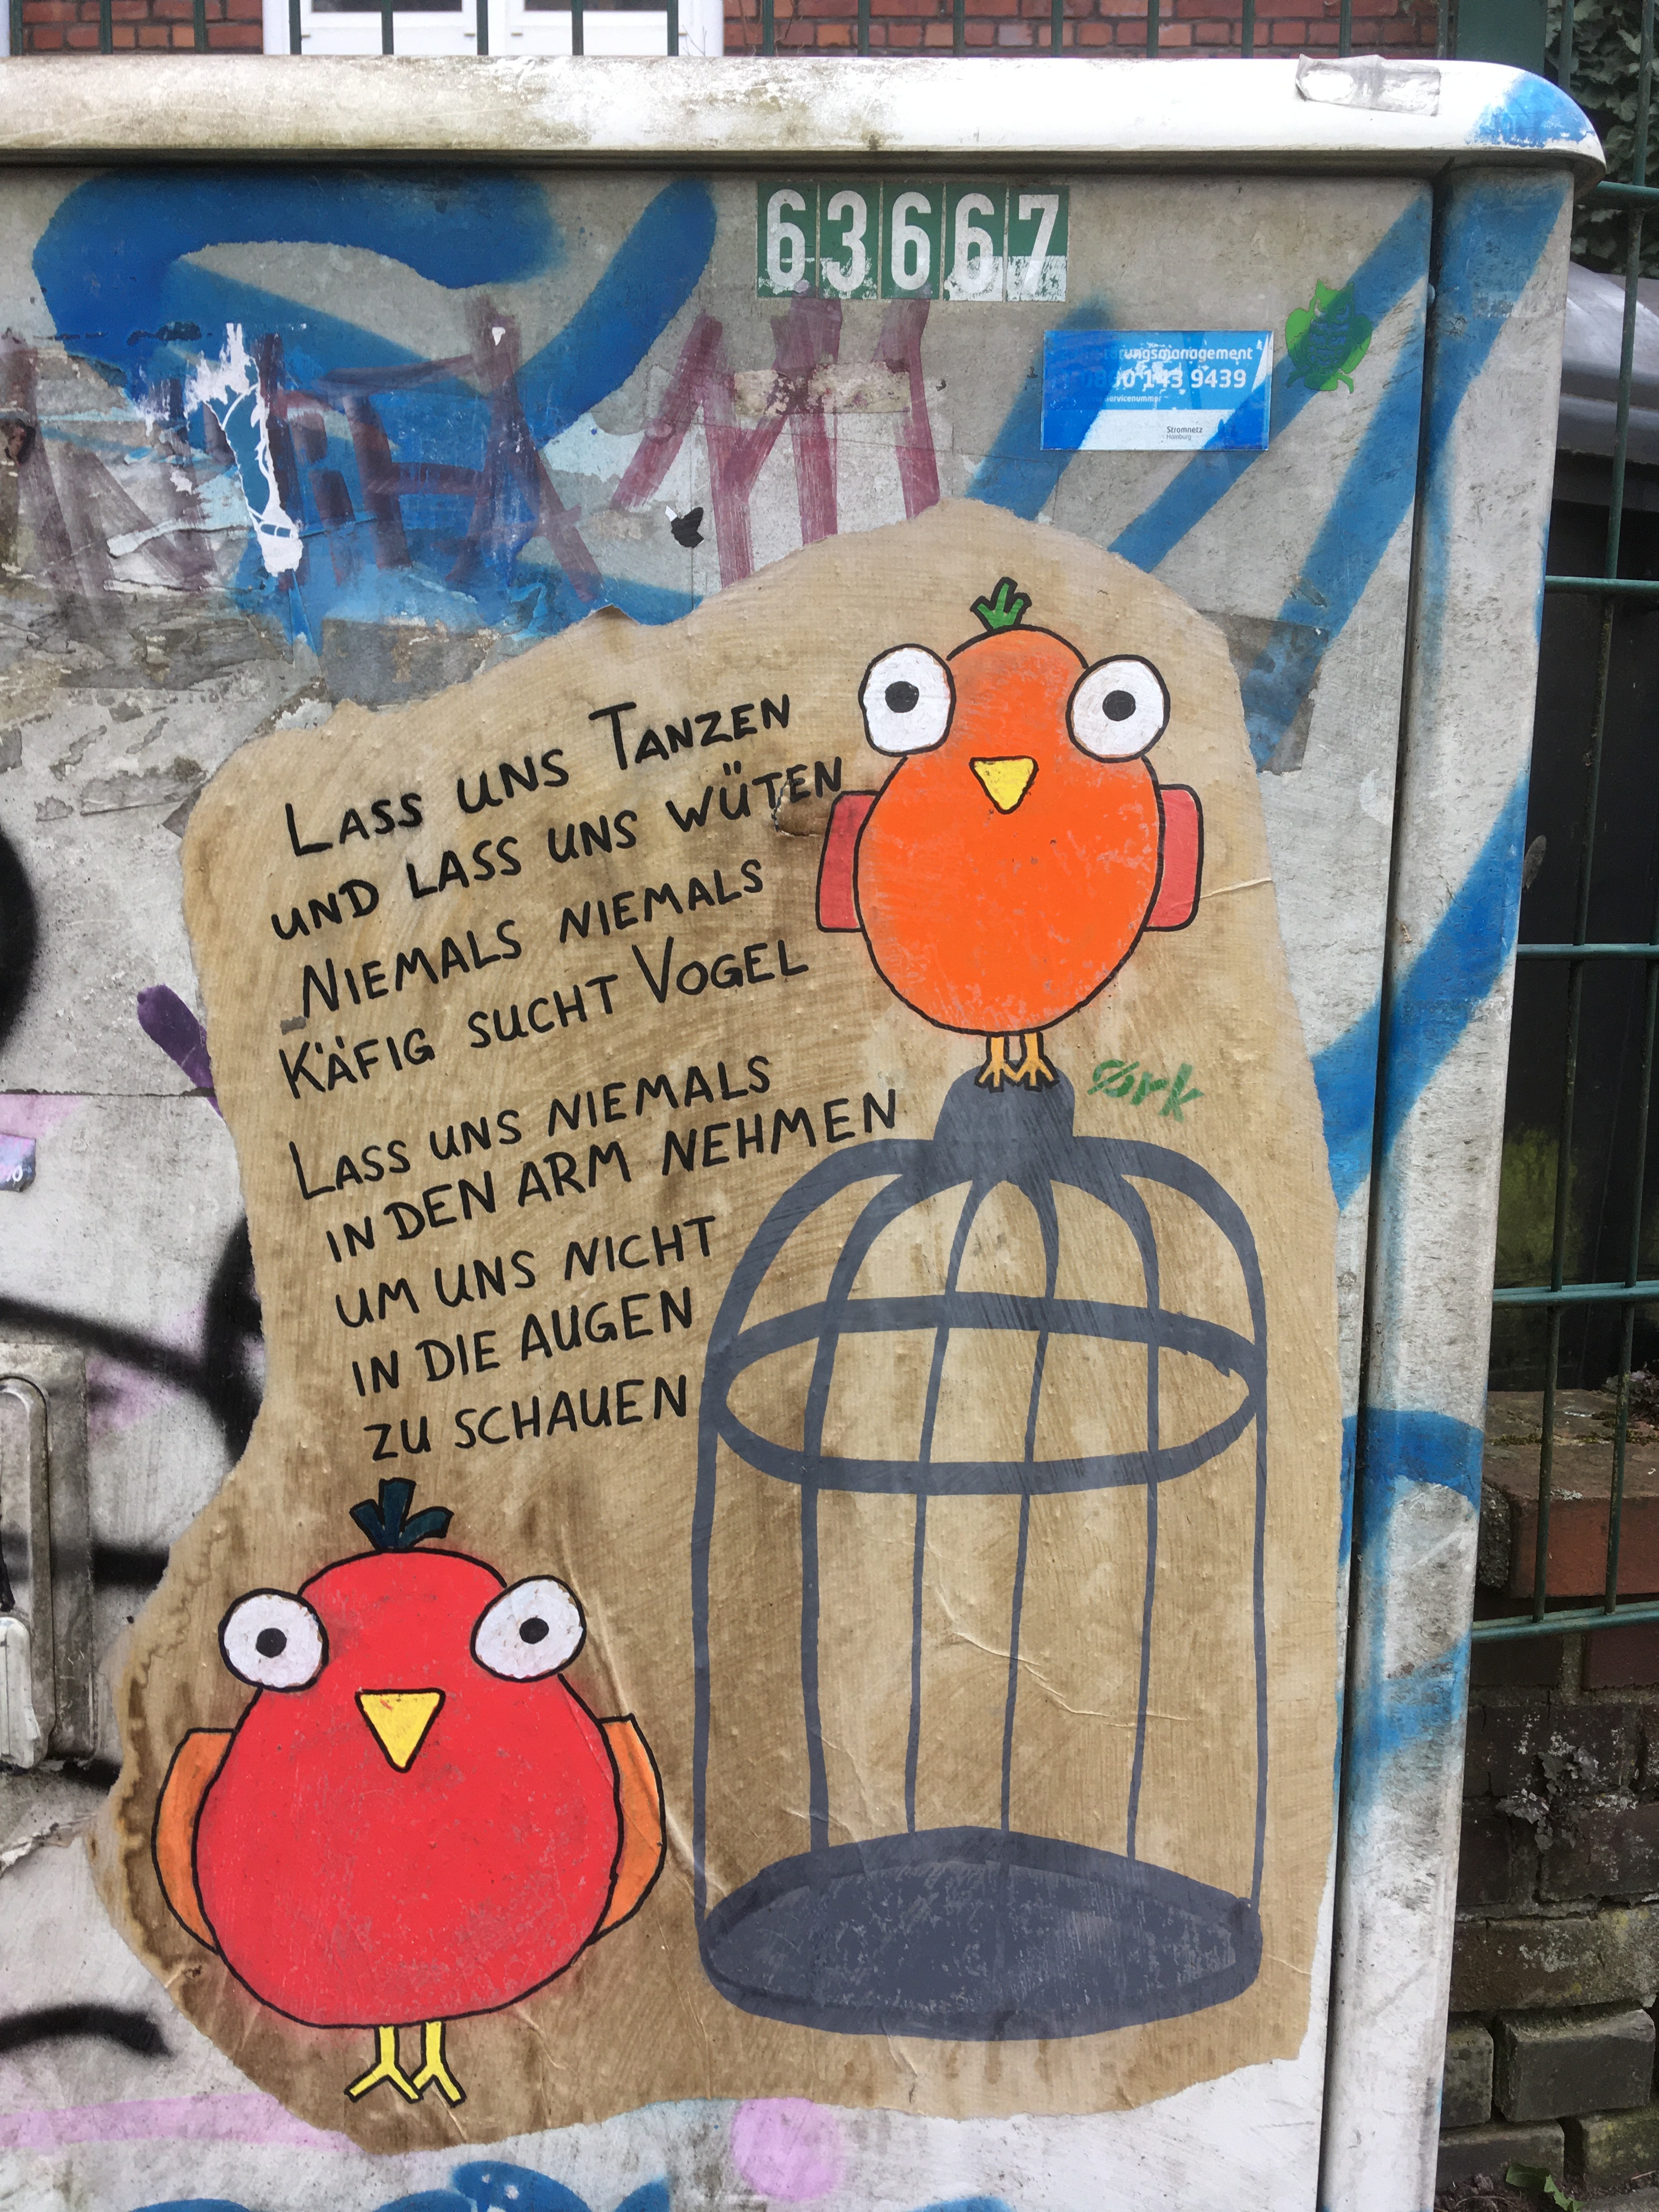 63667
rungsmanagement
143 9439
ervicenummer
Stromnetz
Hamburg
LASS UNS TANZEN
UND LASS UNS WÜTEN
NIEMALS NIEMALS
KÄFIG SUCHT VOGEL
LASS UNS NIEMALS
IN DEN ARM NEHMEN
UM UNS NICHT
IN DIE AUGEN
ZU SCHAUEN
Ørk